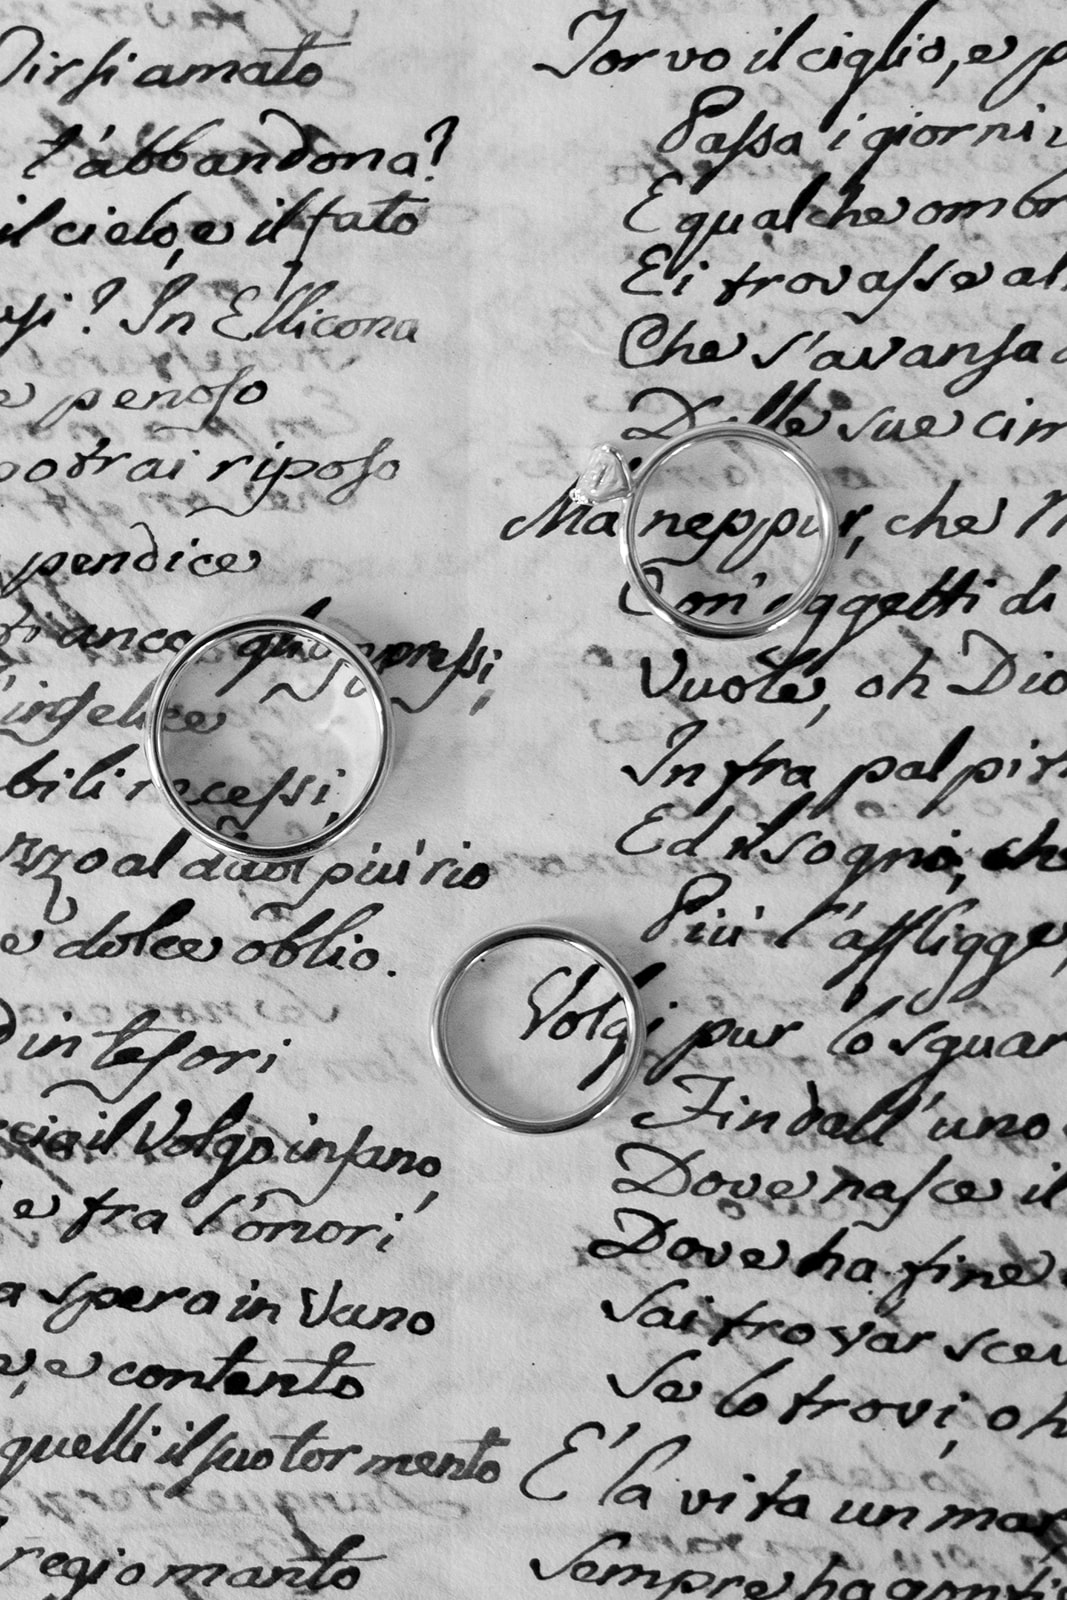 Dirsi amato
t'abbandona?
il cielo, e il fato
In Ellicona
e penoso
potrai riposo
pendice
ti anco
l'infelice
bili recessi,
al duol più rio
e dolce oblio.
in tesori
il Volgo insano,
e fra l'onori
spera in Vano
e contento
quelli il suo tormento
regio manto
Torvo il ciglio, e
Passa i giorni
E qualche
Ei trovasse al
Che s'avansa
Delle sue
Ma neppur, che
Con' oggetti di
Vuole, oh Dio
In fra
Ed il sogni, che
Più l'affligge,
Volgi pur lo
Fin dall' uno
Dove nasce il
Dove ha fine
Sai trovar
Se lo trovi,
E' la vita un
Sempre ha